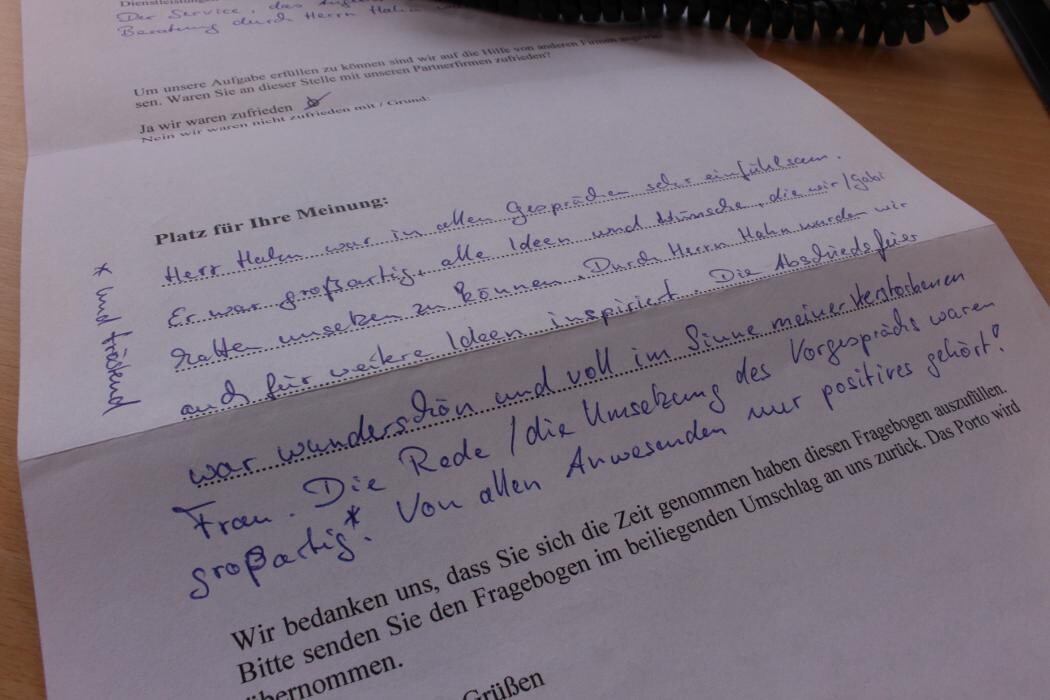 Dienstleistungen
Der Service, das
Beratung durch Herrn Hahn
Um unsere Aufgabe erfüllen zu können sind wir auf die Hilfe von anderen Firmen angewie-
sen. Waren Sie an dieser Stelle mit unseren Partnerfirmen zufrieden?
Ja wir waren zufrieden
Nein wir waren nicht zufrieden mit / Grund:
Platz für Ihre Meinung:
Herr Hahn war in allen Gesprächen sehr einfühlsam.
Er war großartig, alle Ideen und Wünsche, die wir/Gabi
hatten umsetzen zu können. Durch Herrn Hahn wurden wir
auch für weitere Ideen inspiriert. Die Abschiedsfeier
war wunderschön und voll im Sinne meiner verstorbenen
Frau. Die Rede / die Umsetzung des Vorgesprächs waren
großartig*. Von allen Anwesenden nur positives gehört!
* und tröstend
Wir bedanken uns, dass Sie sich die Zeit genommen haben diesen Fragebogen auszufüllen.
Bitte senden Sie den Fragebogen im beiliegenden Umschlag an uns zurück. Das Porto wird
übernommen.
Grüßen